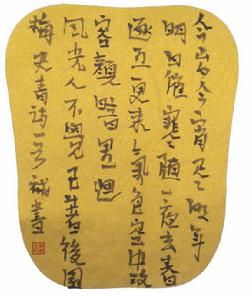 今歲今宵盡明年
明日催寒隨一夜去春
逐五更來氣色空中改
容顏暗裏迴
風光人不覺已著後園
梅史青詩一首誠書